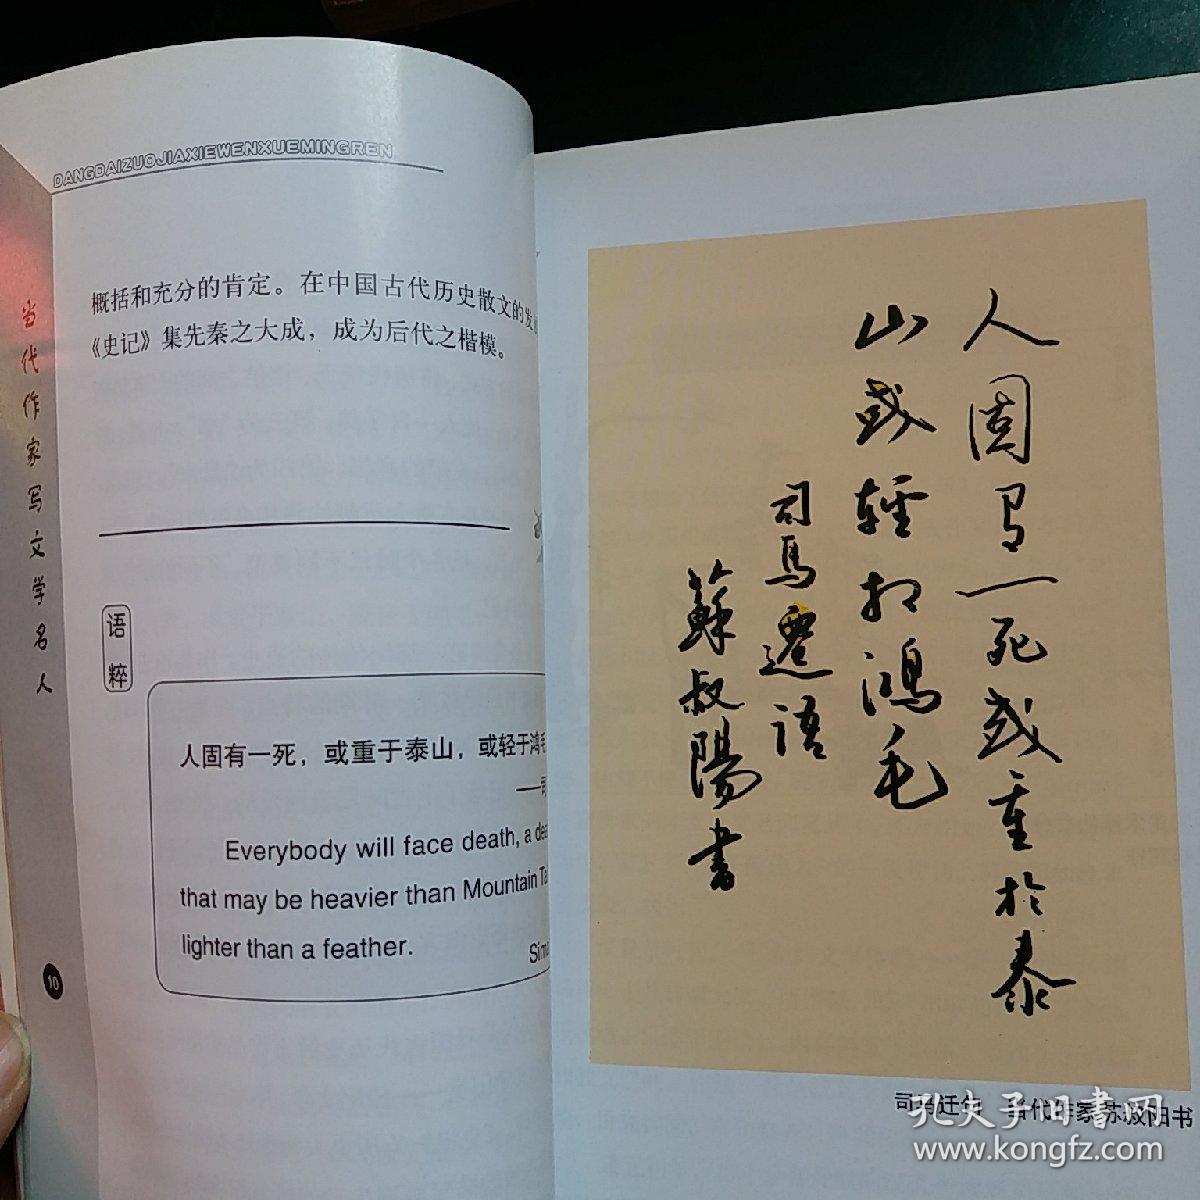 DANGDAIZUOJIAXIEWENXUEMINGREN
当代作家写文学名人
概括和充分的肯定。在中国古代历史散文的发
《史记》集先秦之大成，成为后代之楷模。
语粹
人固有一死，或重于泰山，或轻于鸿毛
——司
Everybody will face death, a dea
that may be heavier than Mountain Ta
lighter than a feather.
Simu
10
人固有一死或重於泰
山或轻於鸿毛
司馬遷语
蘇叔陽書
司马迁句 当代作家苏叔阳书
孔夫子旧書网
www.kongfz.com